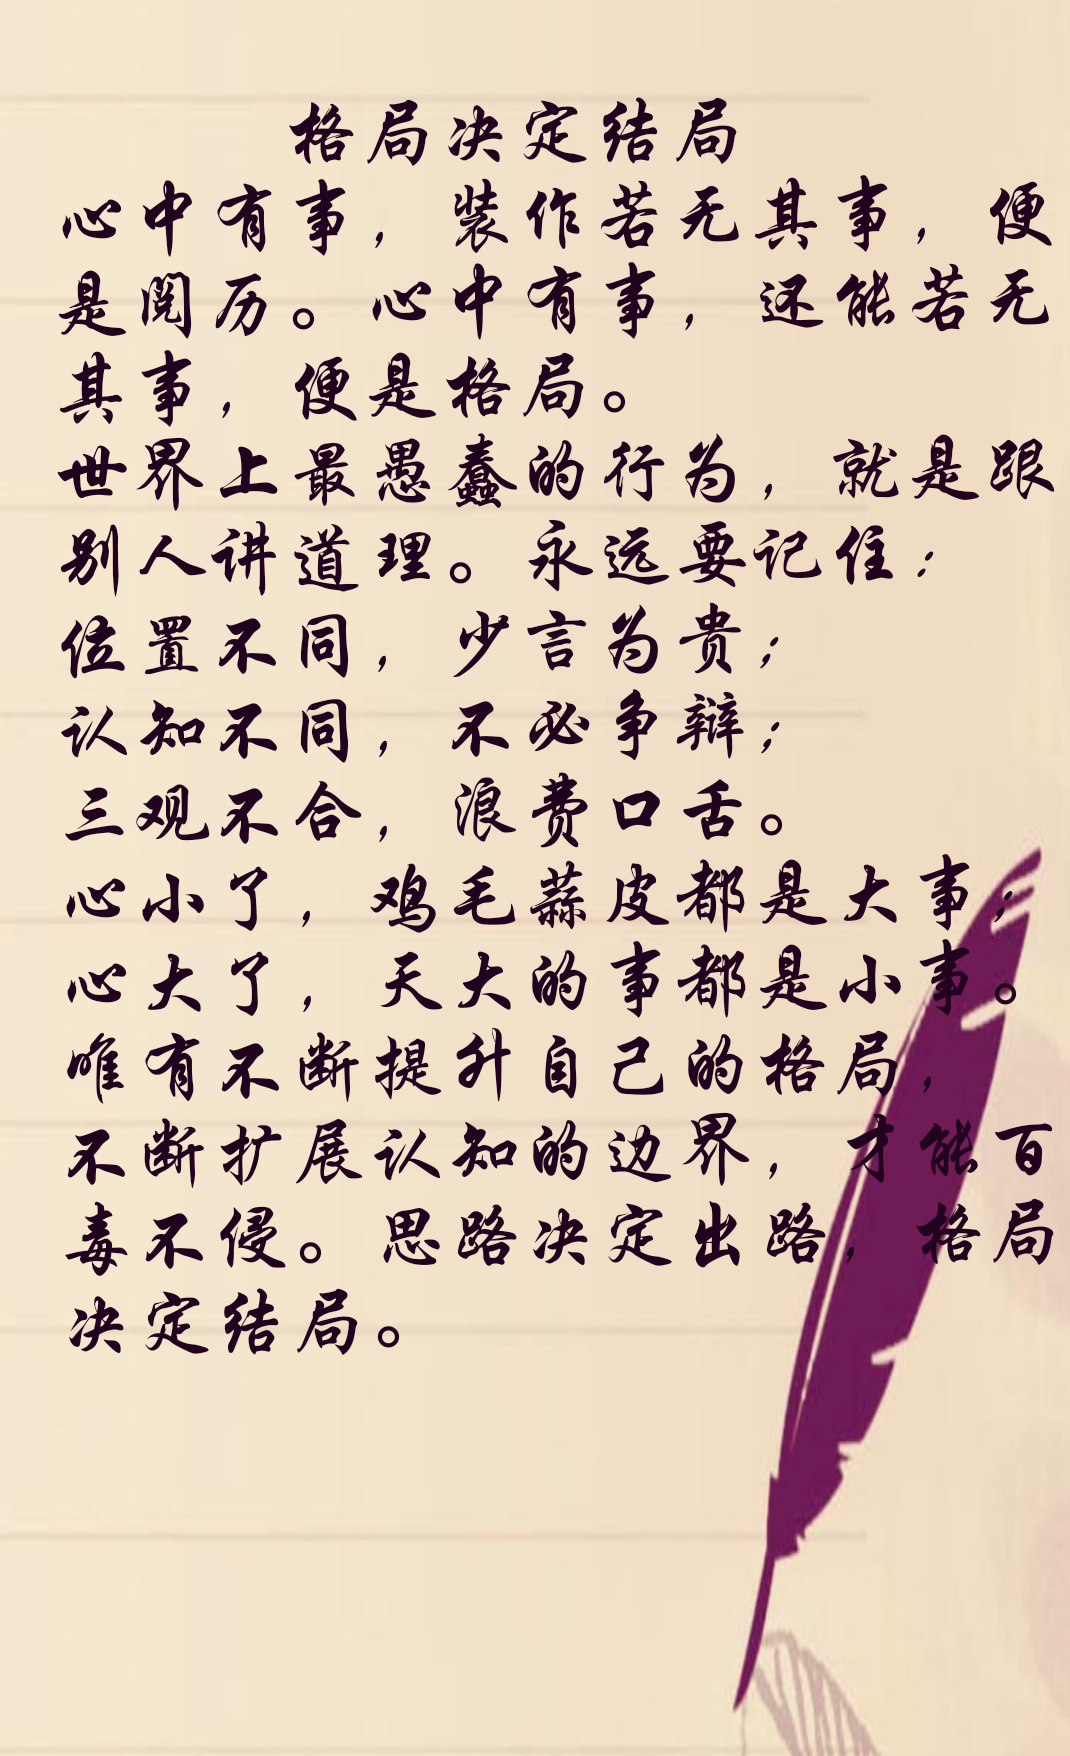 格局决定结局
心中有事，装作若无其事，便
是阅历。心中有事，还能若无
其事，便是格局。
世界上最愚蠢的行为，就是跟
别人讲道理。永远要记住：
位置不同，少言为贵；
认知不同，不必争辩；
三观不合，浪费口舌。
心小了，鸡毛蒜皮都是大事；
心大了，天大的事都是小事。
唯有不断提升自己的格局，
不断扩展认知的边界，才能百
毒不侵。思路决定出路，格局
决定结局。